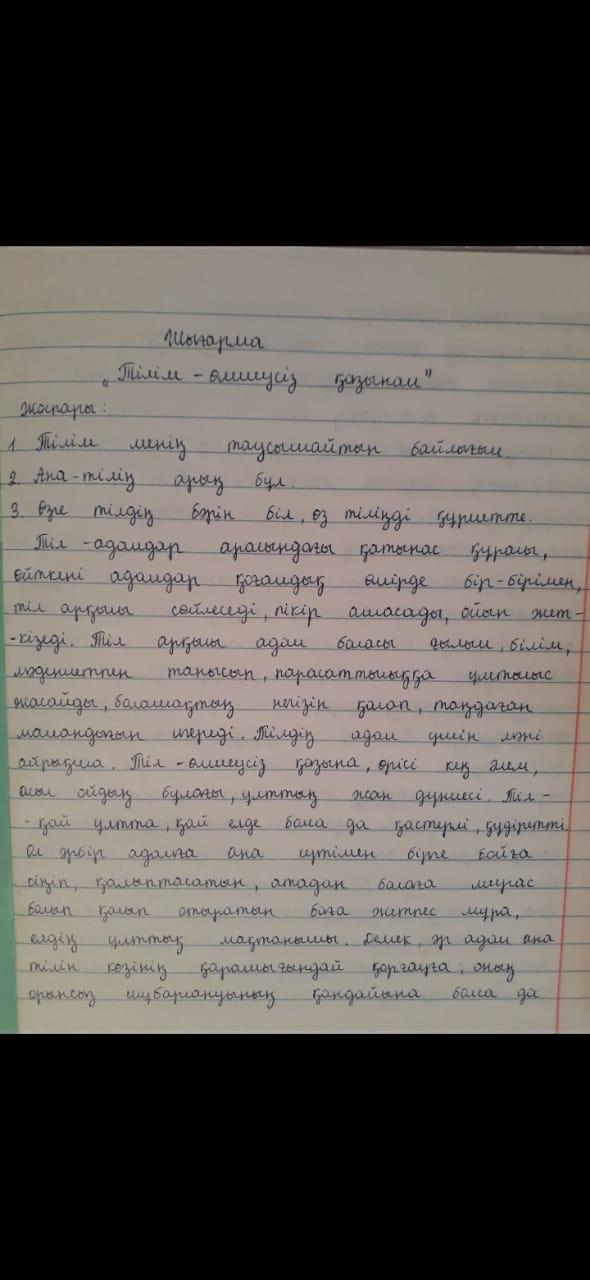 Шығарма
„Тілім - өлшеусіз қазынам"
Жоспары:
1. Тілім менің таусылмайтын байлығым.
2. Ана-тілің арың бұл.
3. Өзге тілдің бәрін біл, өз тіліңді құрметте.
Тіл - адамдар арасындағы қатынас құралы,
өйткені адамдар қоғамдық өмірде бір-бірімен,
тіл арқылы сөйлеседі, пікір алмасады, ойын жет-
-кізеді. Тіл арқылы адам баласы ғылым, білім,
мәдениетпен танысып, парасаттылыққа ұмтылыс
жасайды, болашақтың негізін қалап, таңдаған
мамандығын игереді. Тілдің адам үшін мәні
айрықша. Тіл - өлшеусіз қазына, өрісі кең әлем,
асыл ойдың бұлағы, ұлттың жан дүниесі. Тіл -
- қай ұлтта, қай елде болса да қастерлі, құдіретті.
Ол әрбір адамға ана сүтімен бірге бойға
сіңіп, қалыптасатын, атадан балаға мирас
болып қалып отыратын баға жетпес мұра,
елдің ұлттық мақтанышы. Демек, әр адам ана
тілін көзінің қарашығындай қорғауға, оның
орынсыз шұбарлануының қандайына болса да